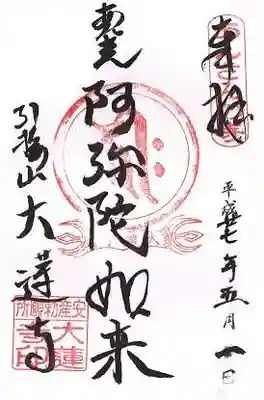 奉拝
阿弥陀如来
引接山大蓮寺
平成廿七年五月一日
安産勅願所
大蓮寺印